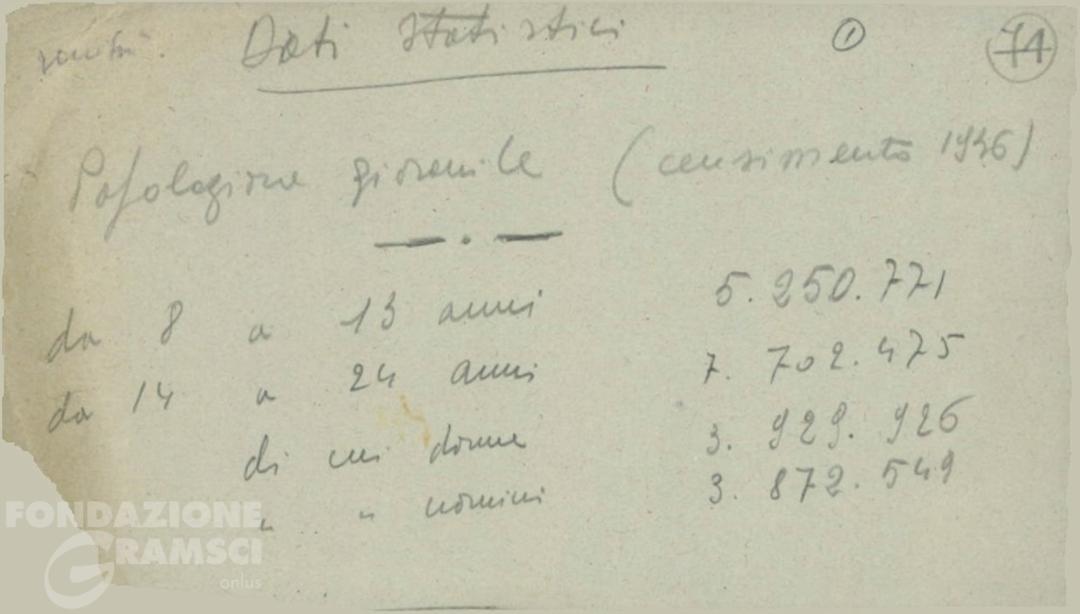 Dati statistici ① 71
Popolazione giovanile (censimento 1936)
da 8 a 13 anni 5.250.771
da 14 a 24 anni 7.702.475
di cui donne 3.929.926
" " uomini 3.872.549
FONDAZIONE
GRAMSCI
onlus